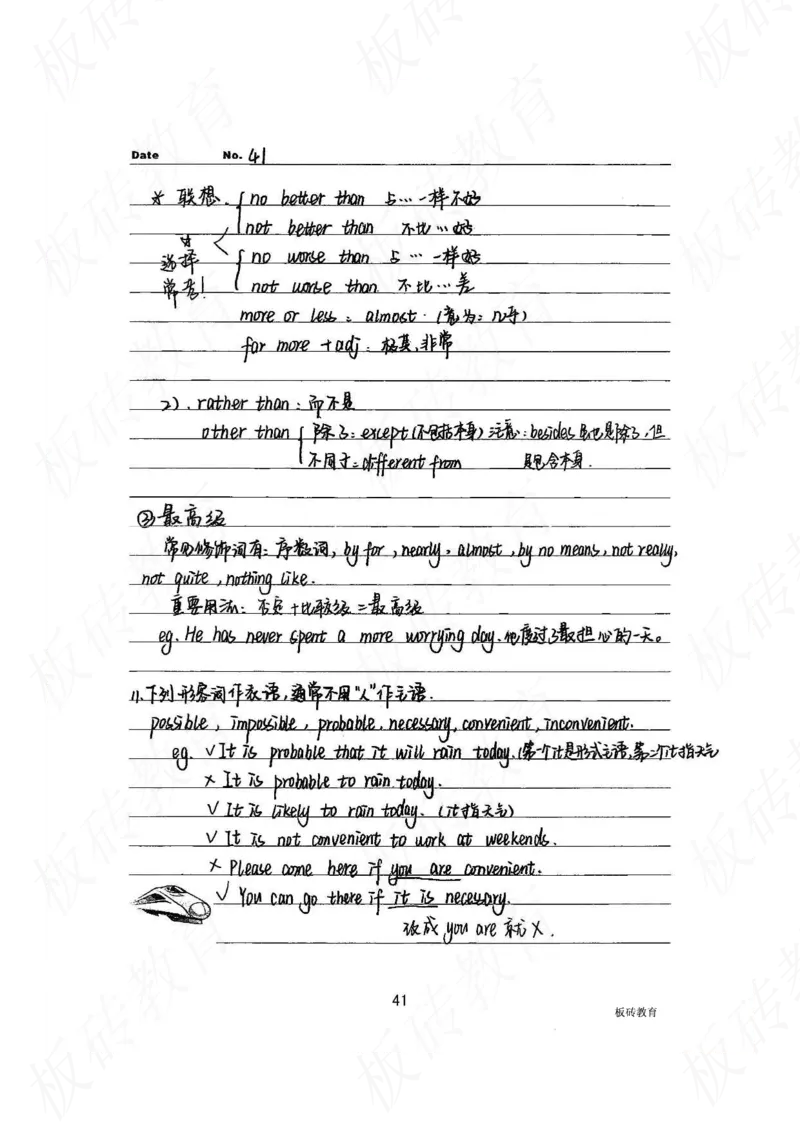 Date No. 41
* 联想. no better than 与…一样不好
not better than 不比…好
选择 no worse than 与…一样好
常考! not worse than 不比…差
more or less = almost. (意为: 几乎)
far more + adj: 极其,非常
2). rather than: 而不是
other than 除了: except(不包括本身) 注意: besides虽也是除了,但
不同于= different from 是包含本身.
③最高级
常见修饰词有: 序数词, by far, nearly, almost, by no means, not really,
not quite, nothing like.
重要用法: 否定+比较级=最高级
eg. He has never spent a more worrying day. 他度过了最担心的一天。
11.下列形容词作表语,通常不用"人"作主语.
possible, impossible, probable, necessary, convenient, inconvenient.
eg. √ It is probable that it will rain today. (第一个it是形式主语,第二个it指天气
× It is probable to rain today.
√ It is likely to rain today. (it指天气)
√ It is not convenient to work at weekends.
× Please come here if you are convenient.
√ You can go there if it is necessary.
改成you are 就×.
41
板砖教育